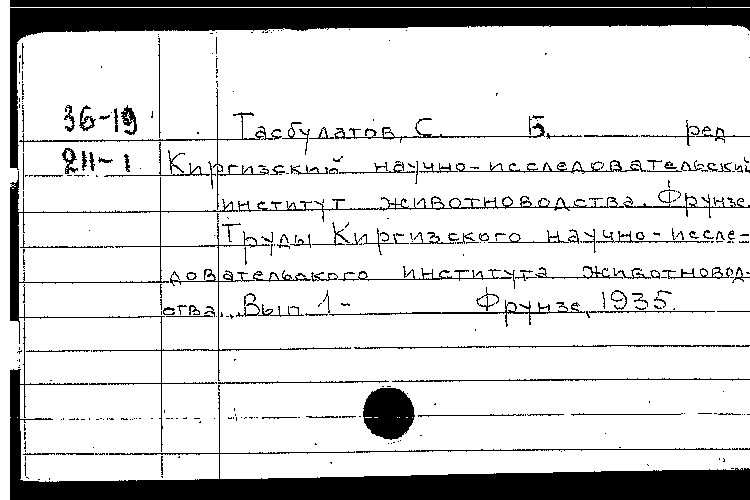 36-19 Тасбулатов, С. Б. ред
211-1 Киргизский научно-исследовательский
институт животноводства. Фрунзе.
Труды Киргизского научно-иссле-
довательского института животновод-
ства. Вып 1- Фрунзе, 1935.